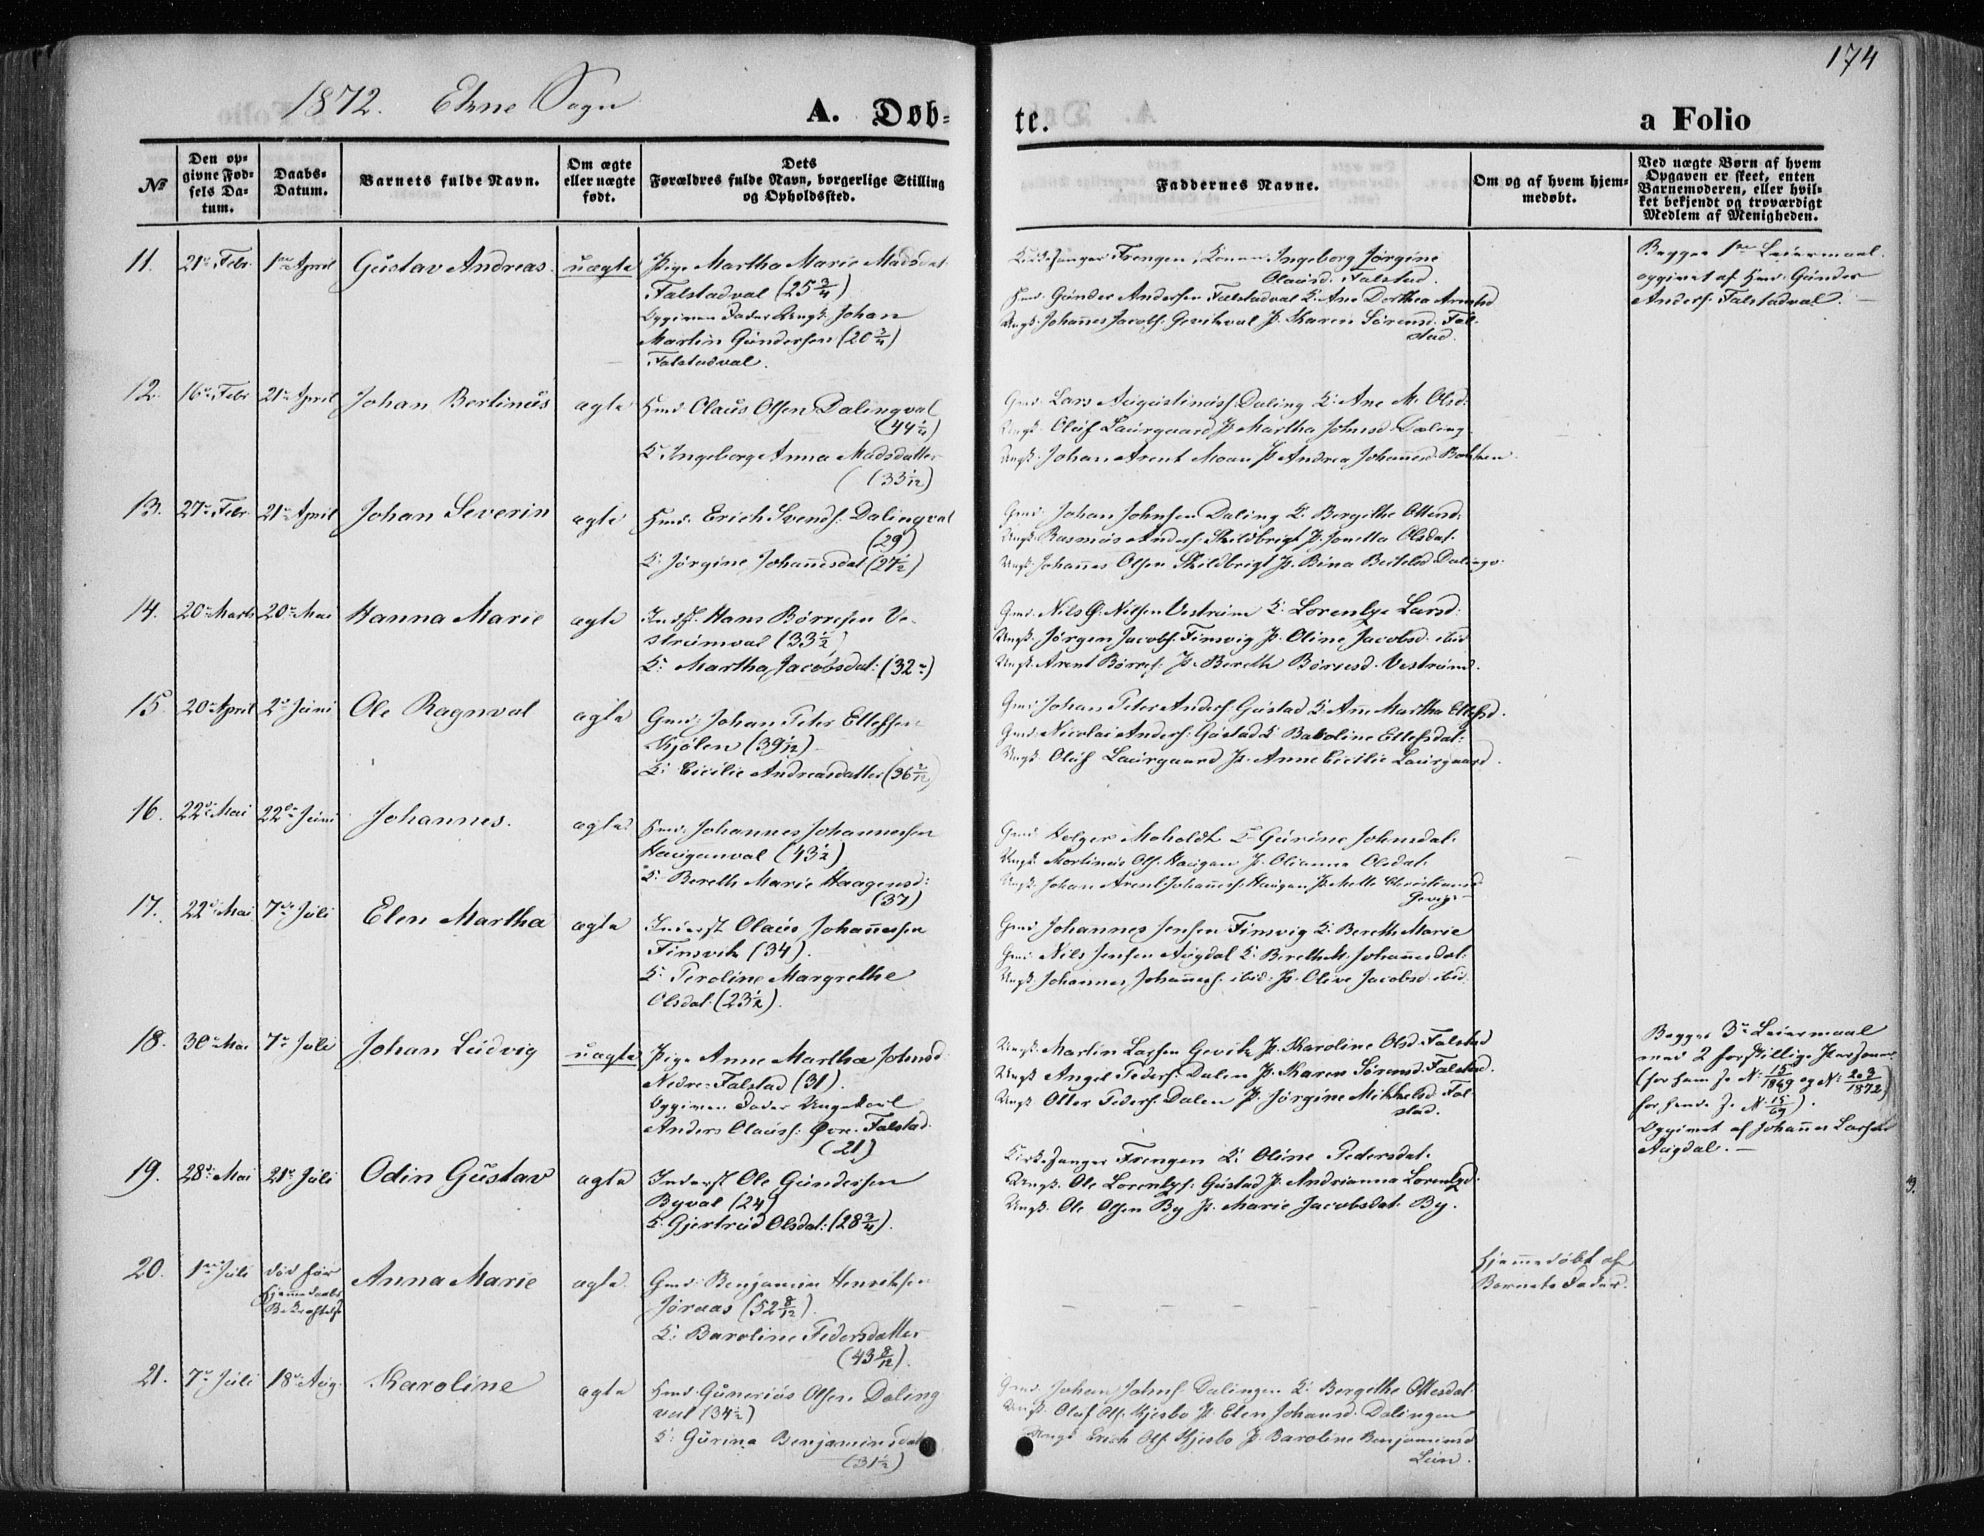 174
1872. Ekne Sogn
A. Døb-
te.
a Folio
No
Den op-
givne Fød-
sels Da-
tum.
Daabs-
Datum.
Barnets fulde Navn.
Om ægte
eller uægte
født.
Dets
Forældres fulde Navn, borgerlige Stilling
og Opholdssted.
Faddernes Navne.
Om og af hvem hjem-
medøbt.
Ved uægte Børn af hvem
Opgaven er skeet, enten
Barnemoderen, eller hvil-
ket bekjendt og troværdigt
Medlem af Menigheden.
11. 21de Febr. 1ste April Gustav Andreas. uægte
Pige Martha Marie Madsdat.
Falstadval (25 3/4)
Opgiven Fader Ungk. Johan
Martin Gundersen (20 3/4)
Falstadval.
Kirkesanger Frengen, Konen Ingeborg Jørgine
Olausd. Falstad.
Hmd. Gunder Andersen Falstadval K. Ane Dorthea Arntsd
Ungk. Johannes Jacobs. Gevikval P. Karen Sørensd. Fal-
stad.
Begges 1ste Leiermaal.
opgivet af Hmd. Gunder
Anders. Falstadval. —
12. 16de Febr 21de April Johan Bertinus ægte
Hmd. Olaus Olsen Dalingval
(44 1/4)
K. Ingeborg Anna Madsdatter
(33 1/12)
Gmd. Lars Augustinuss. Daling K. Ane M. Olsd.
Ungk. Oluf Laurgaard P. Martha Johnsd. Daling
Ungk. Johan Arent Moan P. Andrea Johannesd. Bakken
13. 27de Febr. 21de April Johan Severin ægte
Hmd. Erich Svends. Dalingval
(29)
K. Jørgine Johannesdat (27 1/2)
Gmd. Johan Johnsen Daling K. Bergithe Ottesd.
Ungk. Rasmus Anders. Skildbrigt P. Jonetta Olsdat.
Ungk. Johannes Olsen Skildbrigt P. Bina Beitelsd. Dalingv.
14. 20de Marts 20de Mai Hanna Marie ægte
Inds. Hans Børresen Ve-
strumval (33 1/2)
K. Martha Jacobsdat. (32)
Gmd. Nils O. Nilsen Vestrum K. Lorentze Larsd.
Ungk. Jørgen Jacobs. Finsvig P. Oline Jacobsd. ibid
Ungk. Arent Børres. P. Bereth Børresd. Vestrum.
15. 20de April 2de Juni Ole Ragnval ægte
Gmd. Johan Peter Ellefsen
Kjølen (39 1/12)
K. Cicilie Andreasdatter (36 2/12)
Gmd. Johan Peter Anders. Gustad K. Ane Martha Ellefsd.
Gmd. Nicolai Anders. Gustad K. Baroline Ellefsdat.
Ungk. Oluf Laurgaard P. Anne Cicilie Laurgaard.
16. 22de Mai 22de Juni Johannes. ægte
Hmd. Johannes Johannessen
Hauganval (43 1/2)
K. Bereth Marie Haagensd.
(37)
Gmd. Holger Moholdt K. Gurine Johnsdat.
Ungk. Martinus Ols. Haugan P. Olianna Olsdat.
Ungk. Johan Arent Johannes. Haugan P. Mette Christiansd
Gevig.
17. 22de Mai 7de Juli Elen Martha ægte
Inderst Olaus Johannessen
Finsvik (34).
K. Peroline Margrethe
Olsdat. (23 1/2).
Gmd. Johannes Jensen Finsvig K. Bereth Marie
Gmd. Nils Jensen Augdal K. Bereth M. Johannesdat.
Ungk. Johannes Johannes. ibid. P. Olive Jacobsd. ibid.
18. 30de Mai 7de Juli Johan Ludvig uægte
Pige Anne Martha Johnsd.
Nedre Falstad (31).
Opgiven Fader Ungekarl
Anders Olauss. Øvre Falstad.
(21)
Ungk. Martin Larsen Gevik P. Karoline Olsd. Falstad
Ungk. Angel Peders. Dalen P. Karen Sørensd. Falstad.
Ungk. Otter Peders. Dalen P. Jørgine Mikkelsd. Fal-
stad.
Begges 3de Leiermaal
med 2 forskillige Personer
(for ham se N. 15/1869 og N. 203/1872)
for hende se N. 15/69).
Opgivet af Johannes Larsen
Augdal. —
19. 28de Mai 21de Juli Odin Gustav ægte
Inderst Ole Gundersen
Byval (24)
K. Gjertrud Olsdat. (28 3/4).
Kirkesanger Frengen K. Oline Pedersdat.
Ungk. Ole Lorentzs. Gustad P. Andrianna Lorentzd.
Ungk. Ole Olsen By P. Marie Jacobsdat. By.
20. 1ste Juli død før
Hjemmedaabs
Bekræftelse
Anna Marie ægte
Gmd. Benjamin Henriksen
Jøraas (52 8/12).
K. Baroline Pedersdatter
(43 8/12).
Hjemmedøbt af
Barnets Fader.
21. 7de Juli 18de Aug. Karoline ægte
Hmd. Gunerius Olsen Daling
val (34 1/2)
K. Gurina Benjaminsdat
(31 1/2)
Gmd. Johan Johns. Dalingen K. Bergethe Ottesdat.
Ungk. Oluf Ols. Hjesbo P. Elen Johansd. Dalingen
Ungk. Erich Ols. Hjesbo P. Baroline Benjaminsd
Lein.